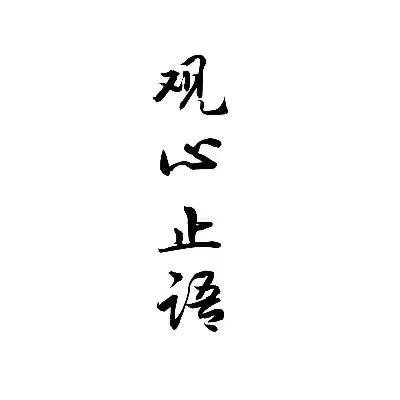 观心止语